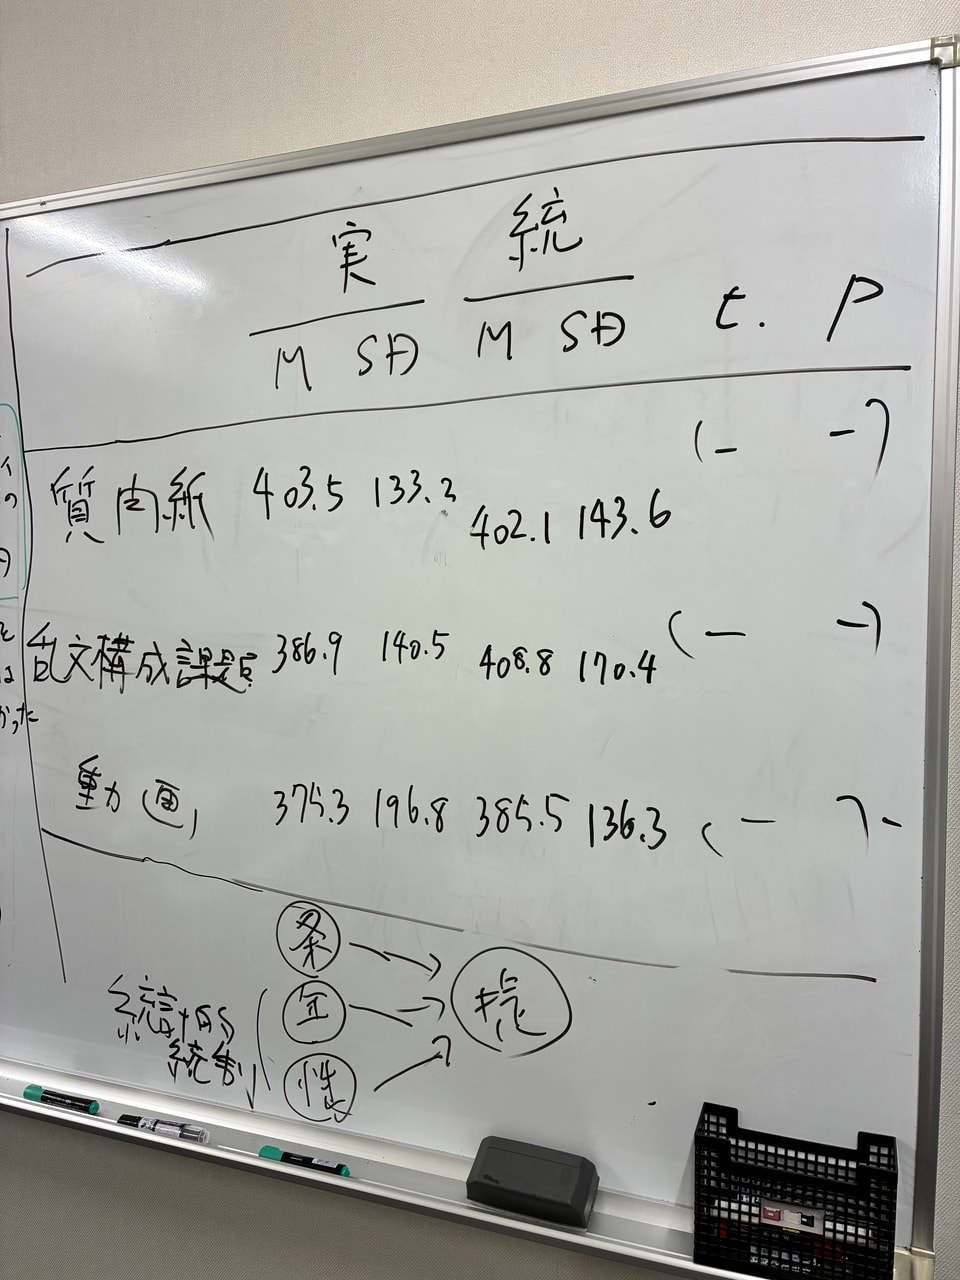 実 統
M SD M SD t. P
質問紙 403.5 133.2 402.1 143.6 (- -)
乱文構成課題 386.9 140.5 408.8 170.4 (- -)
動画 375.3 196.8 385.5 136.3 (- -)
条
年
性
統計的
統制